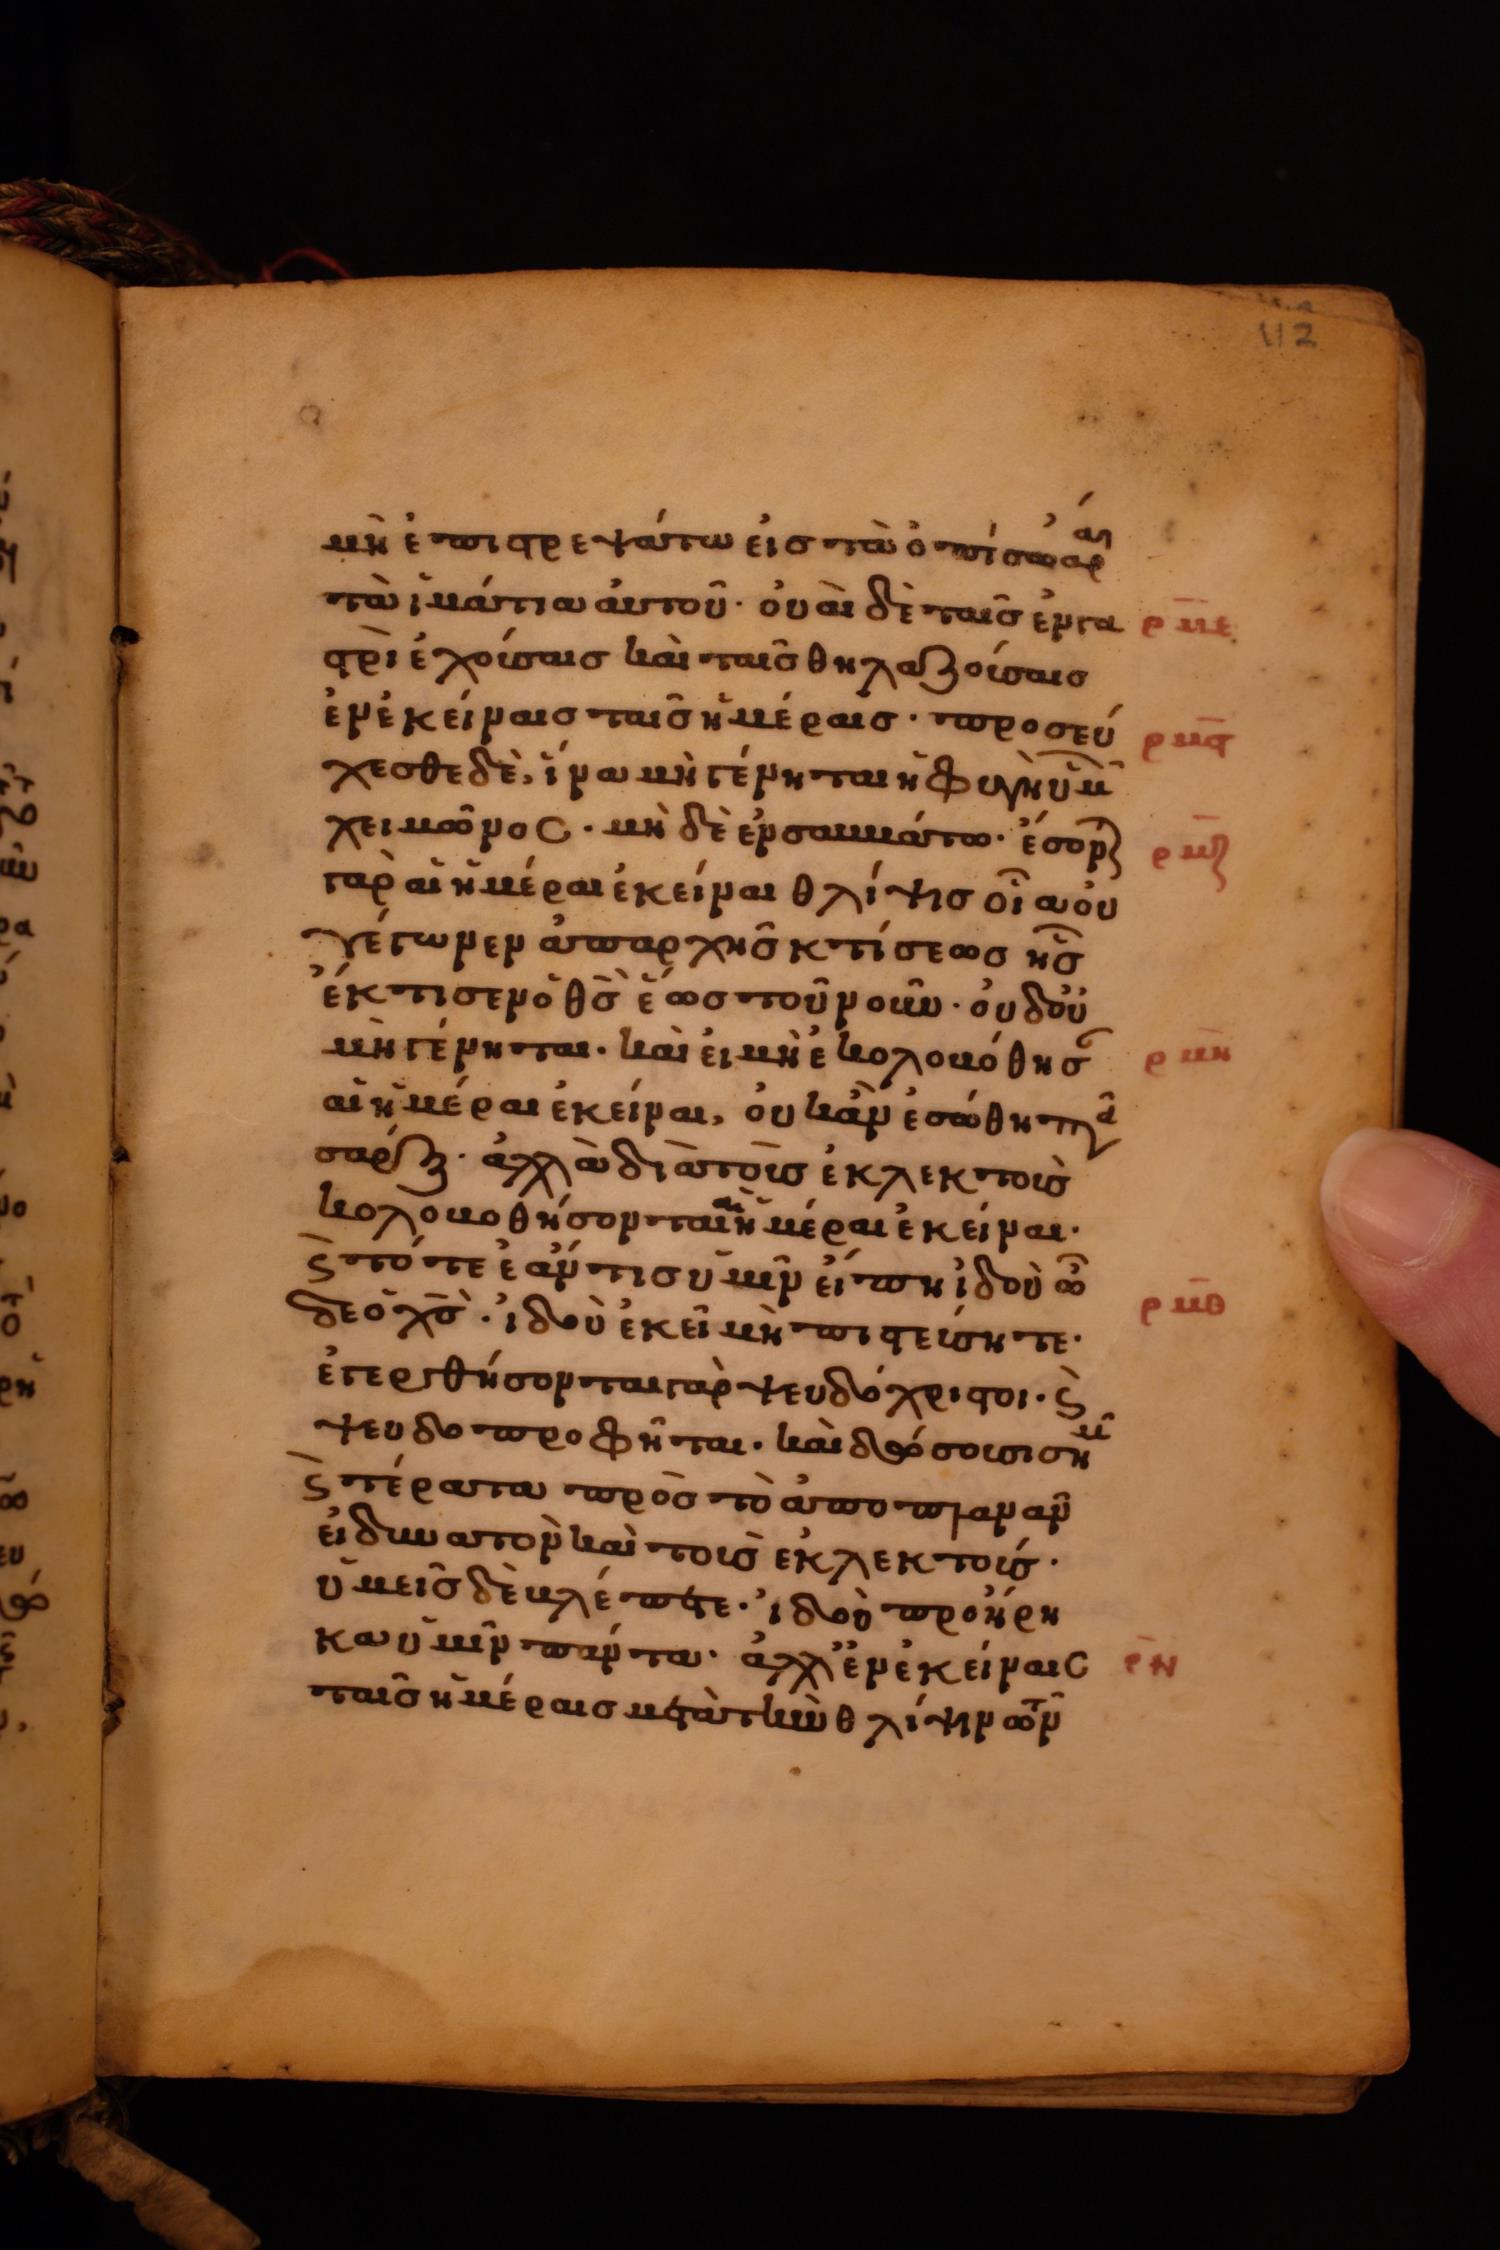 112
μὴ ἐπιστρεψάτω εἰσ τὰ ὀπίσω ἆραι
τὰ ἱμάτια ἀυτοῦ· ὀυαι δὲ ταῖσ ἐν γα ρμε
στρὶ ἐχούσαισ καὶ ταῖσ θηλαζούσαισ
ἐν ἐκείναισ ταῖσ ἡμέραισ· προσεύ ρμϛ
χεσθε δὲ, ἵνα μὴ γένηται ἡ φυγὴ ὑμῶ
χειμῶνοσ· μὴ δὲ ἐν σαμμάτω· ἔσον ρμζ
γὰρ αἱ ἡμέραι ἐκείναι θλίψισ οἵα ὀυ
γέγωνεν ἀπαρχῆσ κτίσεωσ ἧσ
ἔκτισεν ὁ θσ ἕωσ τοῦ νοιῦν· ὀυδοὐ
μὴ γένηται· καὶ ἐι μὴ ἐκολοκόθησ ρμη
αἱ ἡμέραι ἐκείναι, ὀυκἂν ἐσώθη πα
σαρξ· ἀλλὰ διὰ τοῖσ ἐκλεκτοισ
κολοκοθήσονται αἱ ἡμέραι ἐκείναι·
ϛ τότε ἐάν τισ υμῖν εἴπη ἰδοὺ ὧ ρμθ
δε ὁ χσ· ἰδοὺ ἐκεῖ μὴ πιστεύσητε·
ἐγερθήσονται γὰρ ψευδόχριστοι· ϛ
ψευδοπροφῆται· καὶ δώσουσι σημ
ϛ τέρατα πρὸσ τὸ ἀποπλαναν
ἐι δυνατον καὶ τοισ ἐκλεκτοισ·
ὑμεῖσ δὲ βλέπετε· ἰδοὺ προήρη
κα ὑμῖν πάντα· ἀλλ ἐν ἐκείναισ ρν
ταῖσ ἡμέραισ μετὰ τὴν θλίψην